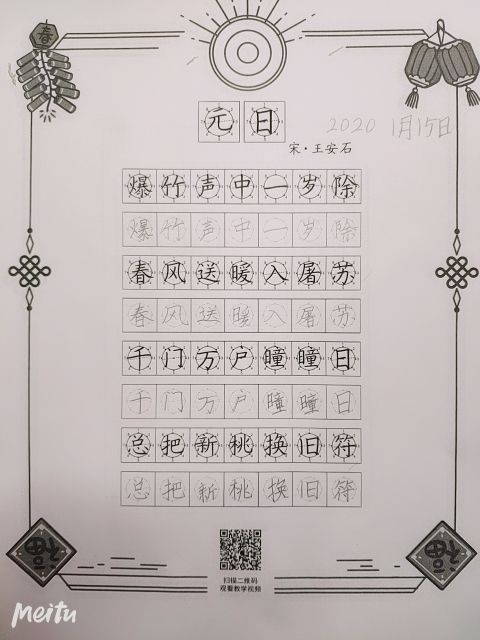 春
元日
2020 1月15日
宋·王安石
爆竹声中一岁除
爆竹声中一岁除
春风送暖入屠苏
春风送暖入屠苏
千门万户曈曈日
千门万户曈曈日
总把新桃换旧符
总把新桃换旧符
福
福
扫描二维码
观看教学视频
Meitu